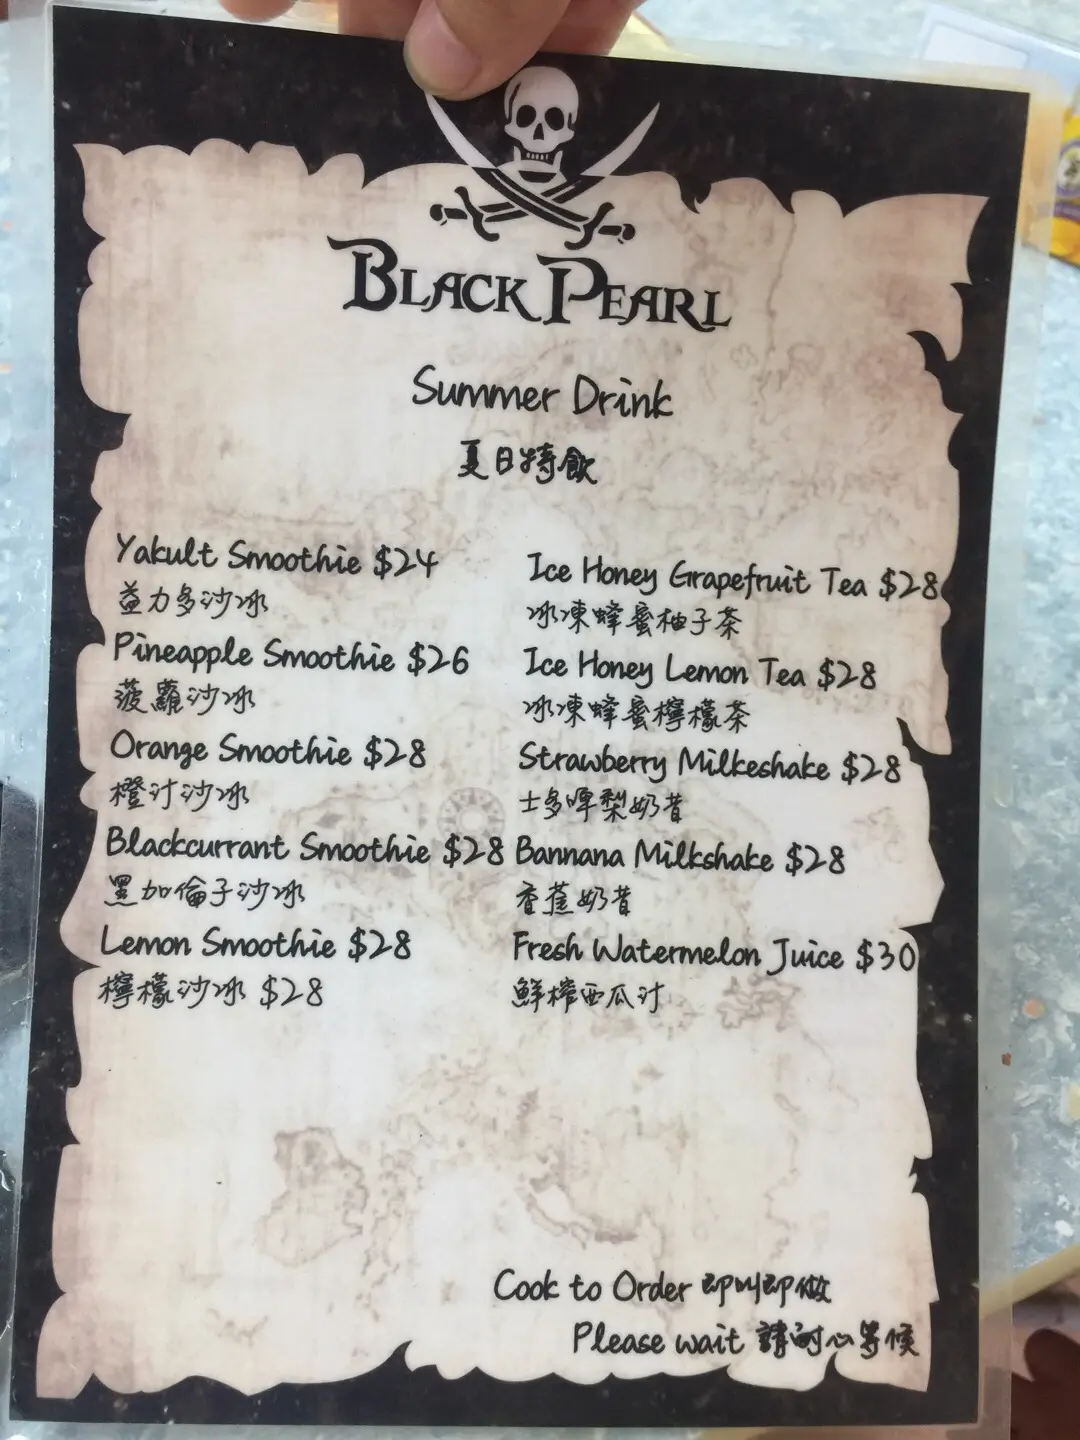 BLACK PEARL
Summer Drink
夏日特飲
Yakult Smoothie $24
益力多沙冰
Pineapple Smoothie $26
菠蘿沙冰
Orange Smoothie $28
橙汁沙冰
Blackcurrant Smoothie $28
黑加倫子沙冰
Lemon Smoothie $28
檸檬沙冰 $28
Ice Honey Grapefruit Tea $28
冰凍蜂蜜柚子茶
Ice Honey Lemon Tea $28
冰凍蜂蜜檸檬茶
Strawberry Milkeshake $28
士多啤梨奶昔
Bannana Milkshake $28
香蕉奶昔
Fresh Watermelon Juice $30
鮮榨西瓜汁
Cook to Order 即叫即做
Please wait 請耐心等候